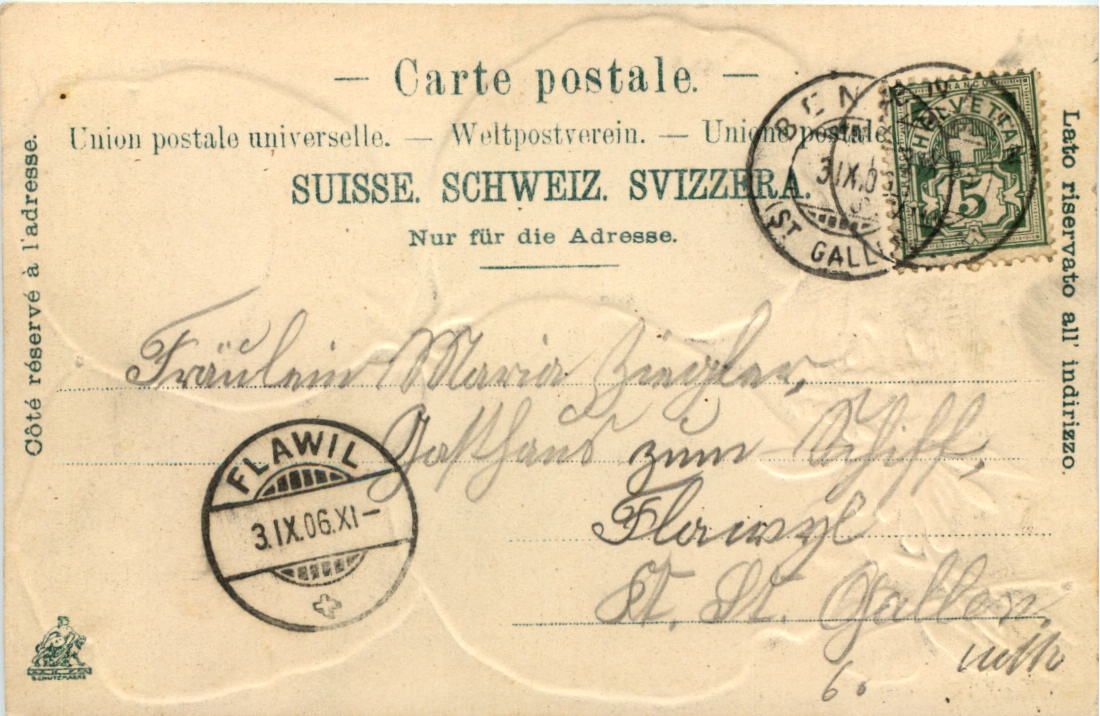 — Carte postale. —
Union postale universelle. — Weltpostverein. — Unione postale
SUISSE. SCHWEIZ. SVIZZERA.
Nur für die Adresse.
Côté réservé à l'adresse.
Lato riservato all' indirizzo.
HELVETIA
5
3.IX.0
(ST GALL
Fräulein Maria Ziegler,
Gasthaus zum Schiff,
Flawyl
Kt. St. Gallen.
6.
FLAWIL
3.IX.06.XI–
SCHUTZMARKE